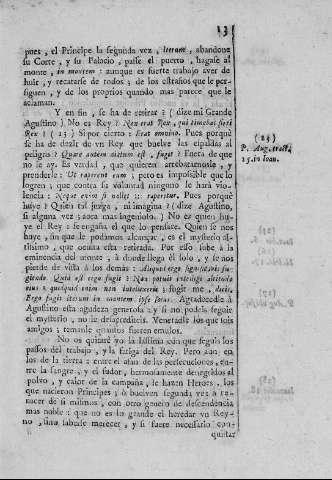 13
pues, el Principe la segunda vez, iterum, abandone
su Corte, y su Palacio, passe el puerto, hagase al
monte, in montem: aunque es fuerte trabajo aver de
huir, y recatarse de todos; de los estraños que le per-
siguen, y de los proprios quando mas parece que le
aclaman.
Y en fin, se ha de retirar? (dize mi Grande
Agustino) No es Rey? Non erat Rex, qui timebat fieri
Rex? (23) Si por cierto: Erat omnino. Pues porquè
se ha de dezir de vn Rey que buelve las espaldas al
peligro? Quare autem dictum est, fugit? Fuera de que
no le ay. Es verdad, que quieren arrebatarmosle, y
prenderle: Ut raperent eum; pero es impossible que lo
logren; que contra su voluntad ninguno le hará vio-
lencia: Neque enim si nollet, raperetur. Pues porquè
huye? Quien tal juzga, ni imagina? (dize Agustino,
si alguna vez, aora mas ingenioso.) No es quien hu-
ye el Rey: se engaña el que lo pensare. Quien se nos
huye, sin que le podamos alcançar, es el mysterio al-
tissimo, que oculta esta retirada. Por esso sube à la
eminencia del monte, à donde llega èl solo, y se nos
pierde de vista à los demàs: Aliquid ergo significabat fu-
giendo. Quid est ergo fugit? Non potuit intelligi altitudo
eius: quidquid enim non intellexeris; fugit me, dicis.
Ergo fugit iterum in montem ipse solus. Agradezcasele à
Agustino esta agudeza generosa: y si no podeis seguir
el mysterio, no le desacrediteis. Veneradle los que sois
amigos; temanle quantos fueren emulos.
No os quiarè yo la lastima con que seguis los
passos del trabajo, y la fatiga del Rey. Pero aun en-
los de la tierra: entre el afan de las persecuciones, en-
tre la sangre, y el sudor, hermosamente denegridos al
polvo, y calor de la campaña, se hazen Heroes, los
que nacieron Principes; ò buelven segunda vez à re-
nacer de si mismos, con otro genero de descendencia
mas noble: que no es lo grande el heredar vn Rey-
no, sino saberle merecer, y si fuere necessario con-
quistar
(23)
P. Aug. tract.
25. in Ioan.